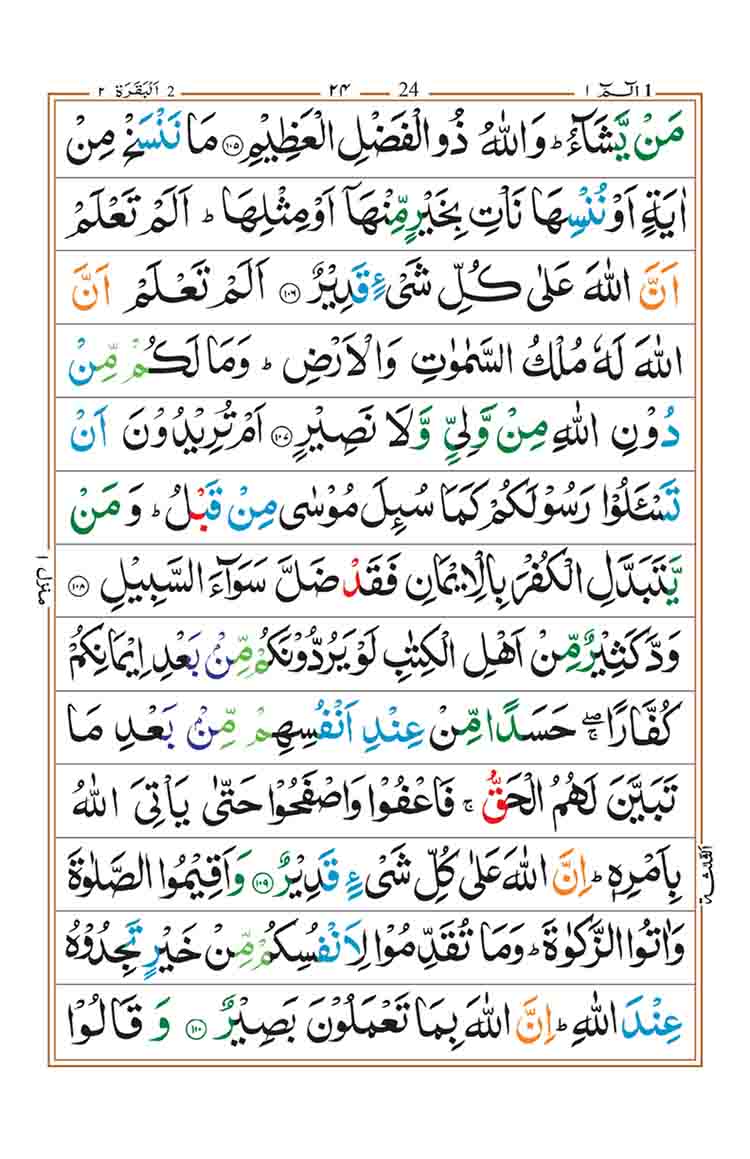 الٓـمّٓ ١ 1 24 ٢٤ اَلْبَقَرَة ٢ 2
مَنْ يَّشَآءُ ؕ وَاللّٰهُ ذُو الْفَضْلِ الْعَظِيْمِ ۝١٠٥ مَا نَنْسَخْ مِنْ
اٰيَةٍ اَوْ نُنْسِهَا نَاْتِ بِخَيْرٍ مِّنْهَآ اَوْ مِثْلِهَا ؕ اَلَمْ تَعْلَمْ
اَنَّ اللّٰهَ عَلٰى كُلِّ شَىْءٍ قَدِيْرٌ ۝١٠٦ اَلَمْ تَعْلَمْ اَنَّ
اللّٰهَ لَهٗ مُلْكُ السَّمٰوٰتِ وَالْاَرْضِ ؕ وَمَا لَكُمْ مِّنْ
دُوْنِ اللّٰهِ مِنْ وَّلِيٍّ وَّلَا نَصِيْرٍ ۝١٠٧ اَمْ تُرِيْدُوْنَ اَنْ
تَسْـَٔلُوْا رَسُوْلَكُمْ كَمَا سُىِٕلَ مُوْسٰى مِنْ قَبْلُ ؕ وَمَنْ
يَّتَبَدَّلِ الْكُفْرَ بِالْاِيْمَانِ فَقَدْ ضَلَّ سَوَآءَ السَّبِيْلِ ۝١٠٨
وَدَّ كَثِيْرٌ مِّنْ اَهْلِ الْكِتٰبِ لَوْ يَرُدُّوْنَكُمْ مِّنْۢ بَعْدِ اِيْمَانِكُمْ
كُفَّارًا ۖۚ حَسَدًا مِّنْ عِنْدِ اَنْفُسِهِمْ مِّنْۢ بَعْدِ مَا
تَبَيَّنَ لَهُمُ الْحَقُّ ۚ فَاعْفُوْا وَاصْفَحُوْا حَتّٰى يَاْتِىَ اللّٰهُ
بِاَمْرِهٖ ؕ اِنَّ اللّٰهَ عَلٰى كُلِّ شَىْءٍ قَدِيْرٌ ۝١٠٩ وَاَقِيْمُوا الصَّلٰوةَ
وَاٰتُوا الزَّكٰوةَ ؕ وَمَا تُقَدِّمُوْا لِاَنْفُسِكُمْ مِّنْ خَيْرٍ تَجِدُوْهُ
عِنْدَ اللّٰهِ ؕ اِنَّ اللّٰهَ بِمَا تَعْمَلُوْنَ بَصِيْرٌ ۝١١٠ وَقَالُوْا
منزل ١
الثلثة